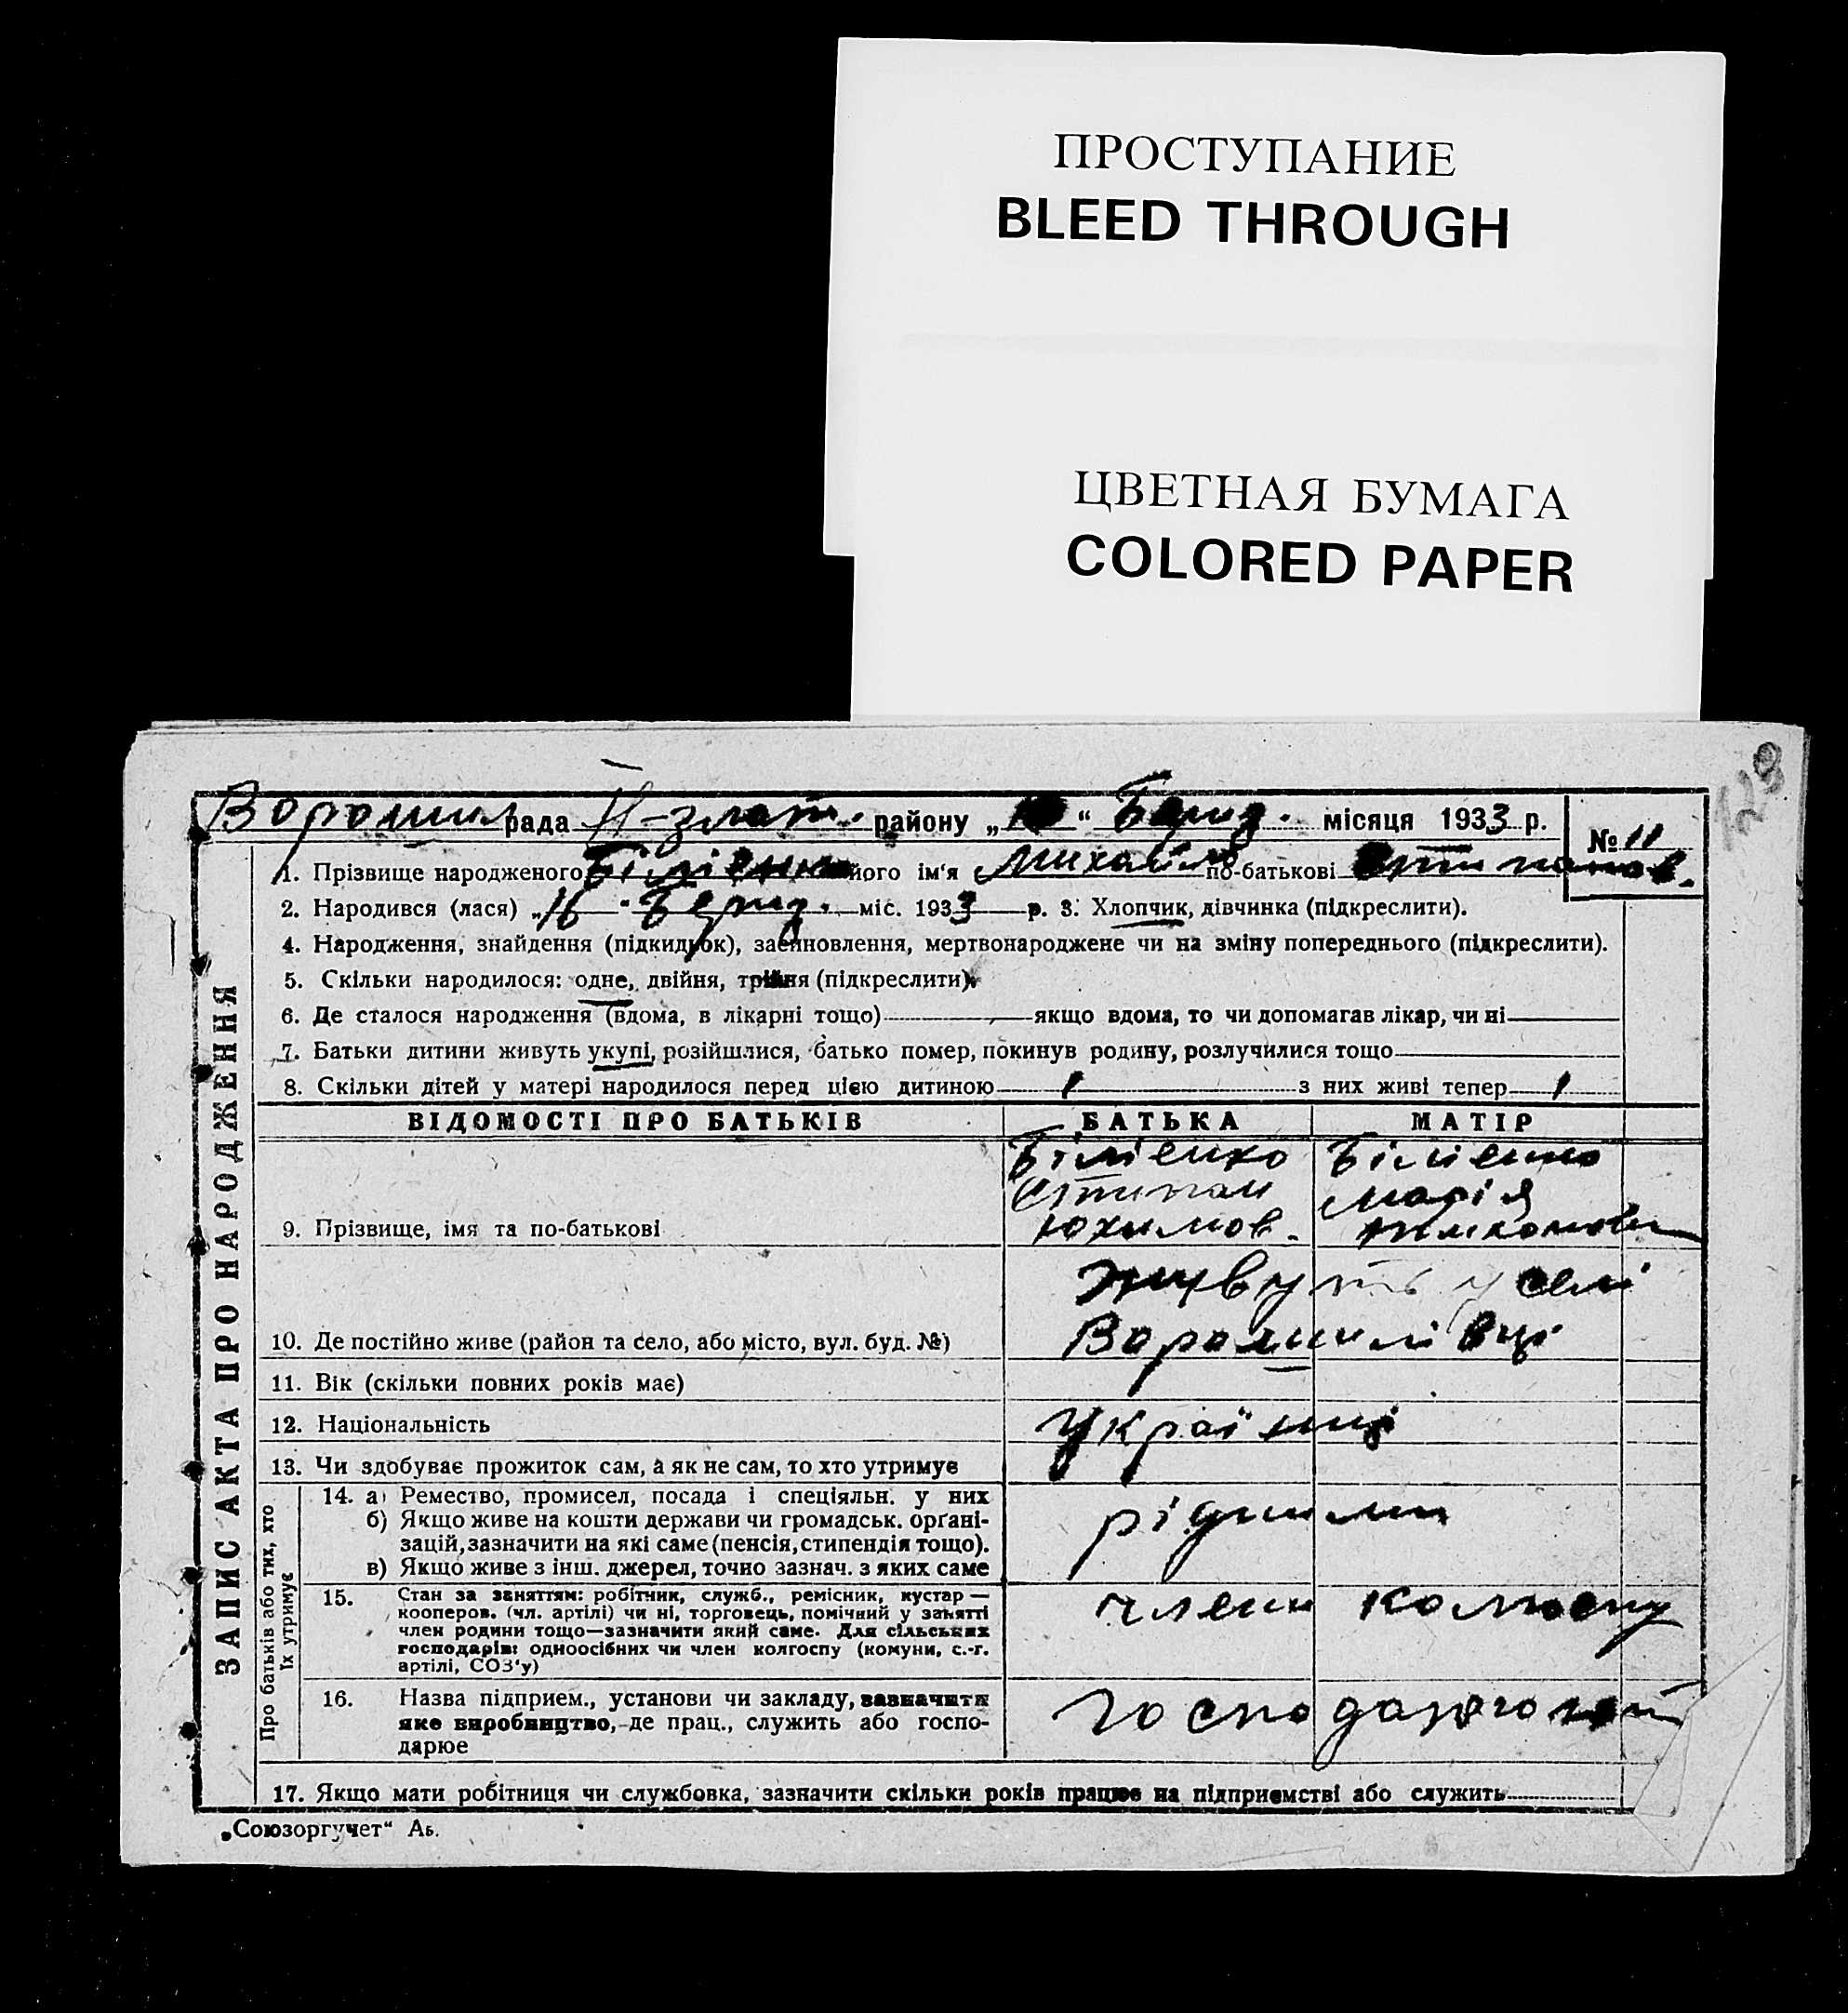 ПРОСТУПАНИЕ
BLEED THROUGH
ЦВЕТНАЯ БУМАГА
COLORED PAPER
Ворошил рада Н-злат. району „ “ Берез. місяця 1933 р.
№ 11
1. Прізвище народженого Біліенко його ім‘я Михайло по-батькові Стипанов.
2. Народився (лася) „16 Берез. міс. 1933 р. 3. Хлопчик, дівчинка (підкреслити).
4. Народження, знайдення (підкидьок), заєиновлення, мертвонароджене чи на зміну попереднього (підкреслити).
5. Скільки народилося: одне, двійня, трійня (підкреслити).
6. Де сталося народження (вдома, в лікарні тощо) якщо вдома, то чи допомагав лікар, чи ні
7. Батьки дитини живуть укупі, розійшлися, батько помер, покинув родину, розлучилися тощо
8. Скільки дітей у матері народилося перед цією дитиною 1 з них живі тепер 1
ЗАПИС АКТА ПРО НАРОДЖЕННЯ
ВІДОМОСТІ ПРО БАТЬКІВ БАТЬКА МАТІР
Біліенко Біліенко
Стипан Марія
9. Прізвище, імя та по-батькові Юхимов.
живуть у селі
10. Де постійно живе (район та село, або місто, вул. буд. №) Ворошилівці
11. Вік (скільки повних років має)
12. Національність Україниці
13. Чи здобуває прожиток сам, а як не сам, то хто утримує
Про батьків або тих, хто
їх утримує
14. а) Ремество, промисел, посада і спеціяльн. у них
б) Якщо живе на кошти держави чи громадськ. орґані-
зацій, зазначити на які саме (пенсія, стипендія тощо).
в) Якщо живе з інш. джерел, точно зазнач. з яких саме
15. Стан за заняттям: робітник, служб., ремісник, кустар —
кооперов. (чл. артілі) чи ні, торговець, помічний у занятті
член родини тощо—зазначити який саме. Для сільських
господарів: одноосібних чи член колгоспу (комуни, с.-г.
артілі, СОЗ‘у)
члени
16. Назва підприєм., установи чи закладу, зазначити
яке виробництво, де прац., служить або госпо-
дарює
17. Якщо мати робітниця чи службовка, зазначити скільки років працює на підприємстві або служить
„Союзоргучет“ Аь.